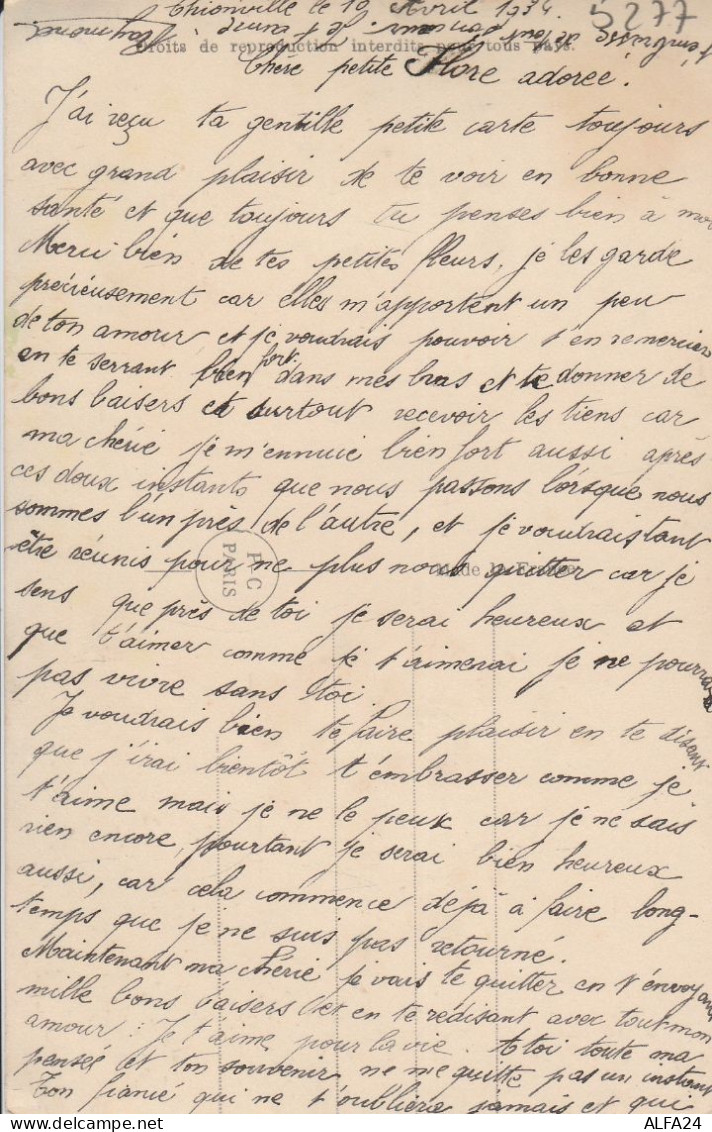 Thionville le 19 Avril 1934
5277
Droits de reproduction interdits pour tous pays.
Chère petite Flore adorée.
J'ai reçu ta gentille petite carte toujours
avec grand plaisir de te voir en bonne
santé et que toujours tu penses bien à moi
Merci bien de tes petites fleurs, je les garde
précieusement car elles m'apportent un peu
de ton amour et je voudrais pouvoir t'en remercier
en te serrant bien fort dans mes bras et te donner de
bons baisers et surtout recevoir les tiens car
ma chérie je m'ennuie bien fort aussi après
ces doux instants que nous passons lorsque nous
sommes l'un près de l'autre, et je voudrais tant
être réunis pour ne plus nous quitter car je
P C
PARIS
sens que près de toi je serai heureux et
que t'aimer comme je t'aimerai je ne pourrai
pas vivre sans toi
Je voudrais bien te faire plaisir en te disant
que j'irai bientôt t'embrasser comme je
t'aime mais je ne le peux car je ne sais
rien encore, pourtant je serai bien heureux
aussi, car cela commence déjà à faire long-
temps que je ne suis pas retourné.
Maintenant ma chérie je vais te quitter en t'envoyant
mille bons baisers et en te redisant avec tout mon
amour : Je t'aime pour la vie. A toi toute ma
pensée et ton souvenir ne me quitte pas un instant
Ton fiancé qui ne t'oubliera jamais et qui
ALFA24